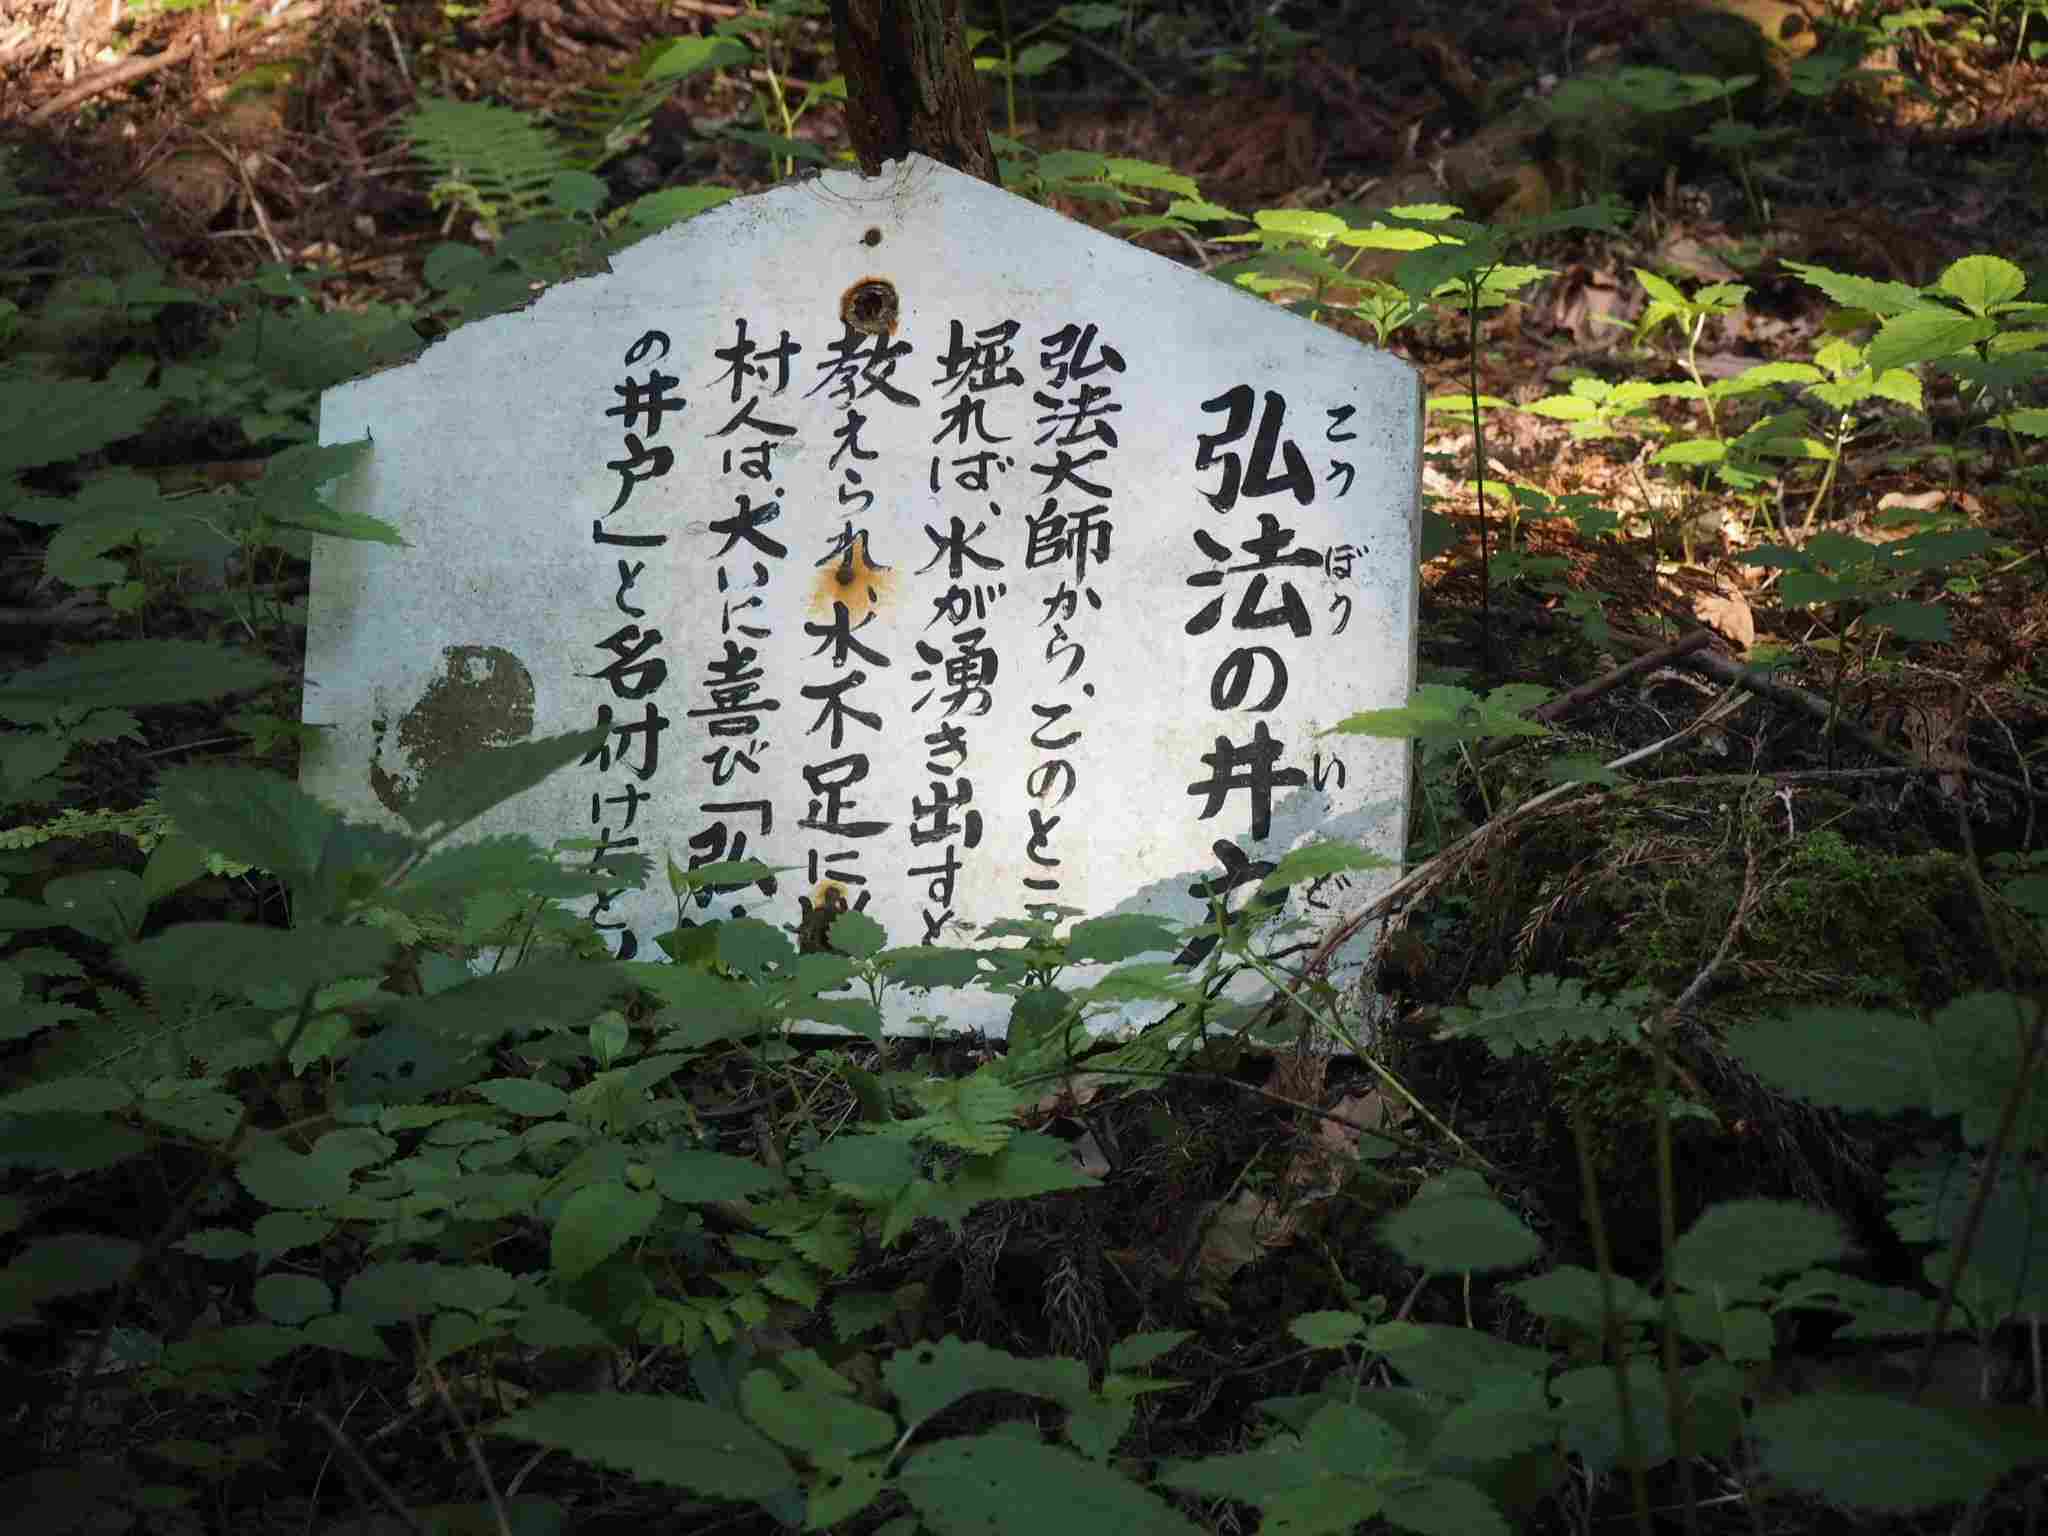 こうぼう いど
弘法の井戸
弘法大師から、このとこ
堀れば、水が湧き出すと
教えられ、水不足に
村人は、大いに喜び「弘法
の井戸」と名付けたと